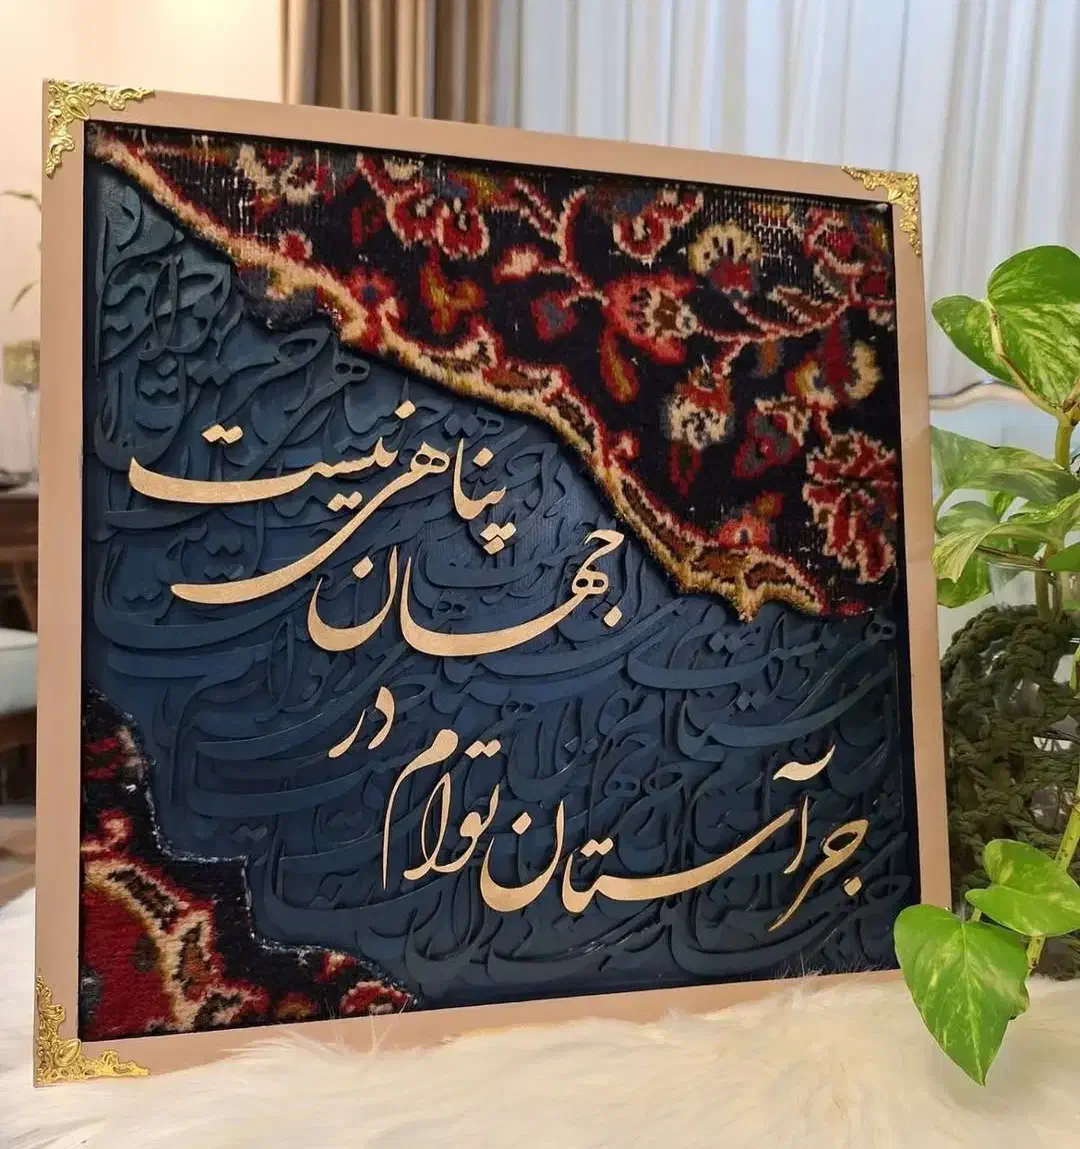 جز آستان توام
در جهان
پناهی نیست